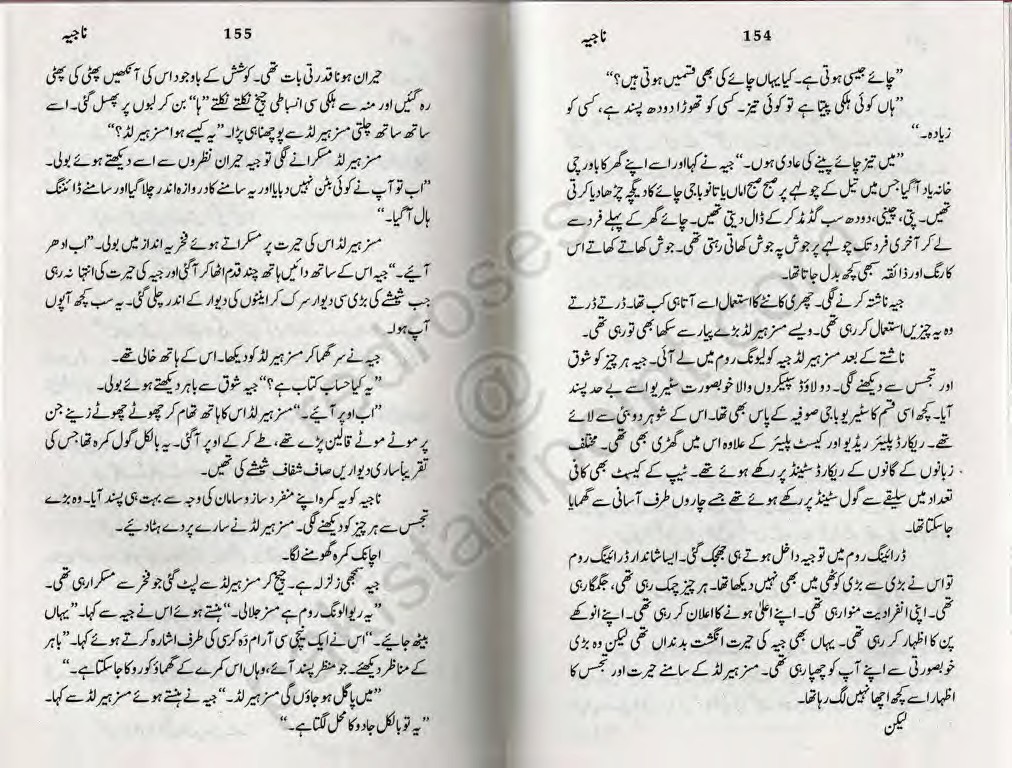 154 ناجیہ
”چائے جیسی ہوتی ہے۔ کیا یہاں چائے کی بھی قسمیں ہوتی ہیں؟“
”ہاں کوئی ہلکی پیتا ہے تو کوئی تیز۔ کسی کو تھوڑا دودھ پسند ہے، کسی کو
زیادہ۔“
”میں تیز چائے پینے کی عادی ہوں۔“ جیہ نے کہا اور اسے اپنے گھر کا باورچی
خانہ یاد آ گیا جس میں تیل کے چولہے پر صبح صبح اماں یا تانو باجی چائے کا دیگچہ چڑھا دیا کرتی
تھیں۔ پتی، چینی، دودھ سب گڈمڈ کر کے ڈال دیتی تھیں۔ چائے گھر کے پہلے فرد سے
لے کر آخری فرد تک چولہے پر جوش پہ جوش کھاتی رہتی تھی۔ جوش کھاتے کھاتے اس
کا رنگ اور ذائقہ سبھی کچھ بدل جاتا تھا۔
جیہ ناشتہ کرنے لگی۔ چھری کانٹے کا استعمال اسے آتا ہی کب تھا۔ ڈرتے ڈرتے
وہ یہ چیزیں استعمال کر رہی تھی۔ ویسے مسز ہیرلڈ بڑے پیار سے سکھا بھی تو رہی تھی۔
ناشتے کے بعد مسز ہیرلڈ جیہ کو لیونگ روم میں لے آئی۔ جیہ ہر چیز کو شوق
اور تجسس سے دیکھنے لگی۔ دو لاؤڈ سپیکروں والا خوبصورت سٹیریو اسے بے حد پسند
آیا۔ کچھ اسی قسم کا سٹیریو باجی صوفیہ کے پاس بھی تھا۔ اس کے شوہر دوبئی سے لائے
تھے۔ ریکارڈ پلیئر ریڈیو اور کیسٹ پلیئر کے علاوہ اس میں گھڑی بھی تھی۔ مختلف
زبانوں کے گانوں کے ریکارڈ سٹینڈ پر رکھے ہوئے تھے۔ ٹیپ کے کیسٹ بھی کافی
تعداد میں سلیقے سے گول سٹینڈ پر رکھے ہوئے تھے جسے چاروں طرف آسانی سے گھمایا
جا سکتا تھا۔
ڈرائینگ روم میں تو جیہ داخل ہوتے ہی جھجک گئی۔ ایسا شاندار ڈرائینگ روم
تو اس نے بڑی سے بڑی کوٹھی میں بھی نہیں دیکھا تھا۔ ہر چیز چمک رہی تھی، جگمگا رہی
تھی۔ اپنی انفرادیت منوا رہی تھی۔ اپنے اعلیٰ ہونے کا اعلان کر رہی تھی۔ اپنے انوکھے
پن کا اظہار کر رہی تھی۔ یہاں بھی جیہ کی حیرت انگشت بدنداں تھی لیکن وہ بڑی
خوبصورتی سے اپنے آپ کو چھپا رہی تھی۔ مسز ہیرلڈ کے سامنے حیرت اور تجسس کا
اظہار اسے کچھ اچھا نہیں لگ رہا تھا۔
لیکن
155 ناجیہ
حیران ہونا قدرتی بات تھی۔ کوشش کے باوجود اس کی آنکھیں پھٹی کی پھٹی
رہ گئیں اور منہ سے ہلکی سی انبساطی چیخ نکلتے نکلتے ”ہا“ بن کر لبوں پر پھسل گئی۔ اسے
ساتھ ساتھ چلتی مسز ہیرلڈ سے پوچھنا ہی پڑا۔ ”یہ کیسے ہوا مسز ہیرلڈ؟“
مسز ہیرلڈ مسکرانے لگی تو جیہ حیران نظروں سے اسے دیکھتے ہوئے بولی۔
”اب تو آپ نے کوئی بٹن نہیں دبایا اور یہ سامنے کا دروازہ اندر چلا گیا اور سامنے ڈائننگ
ہال آ گیا۔“
مسز ہیرلڈ اس کی حیرت پر مسکراتے ہوئے فخریہ انداز میں بولی۔ ”اب ادھر
آیئے۔“ جیہ اس کے ساتھ دائیں ہاتھ چند قدم اٹھا کر آ گئی اور جیہ کی حیرت کی انتہا نہ رہی
جب شیشے کی بڑی سی دیوار سرک کر اینٹوں کی دیوار کے اندر چلی گئی۔ یہ سب کچھ آپوں
آپ ہوا۔
جیہ نے سر گھما کر مسز ہیرلڈ کو دیکھا۔ اس کے ہاتھ خالی تھے۔
”یہ کیا حساب کتاب ہے؟“ جیہ شوق سے باہر دیکھتے ہوئے بولی۔
”اب اوپر آیئے۔“ مسز ہیرلڈ اس کا ہاتھ تھام کر چھوٹے چھوٹے زینے جن
پر موٹے موٹے قالین پڑے تھے، طے کر کے اوپر آ گئی۔ یہ بالکل گول کمرہ تھا جس کی
تقریباً ساری دیواریں صاف شفاف شیشے کی تھیں۔
ناجیہ کو یہ کمرہ اپنے منفرد ساز و سامان کی وجہ سے بہت ہی پسند آیا۔ وہ بڑے
تجسس سے ہر چیز کو دیکھنے لگی۔ مسز ہیرلڈ نے سارے پردے ہٹا دیئے۔
اچانک کمرہ گھومنے لگا۔
جیہ سمجھی زلزلہ ہے۔ چیخ کر مسز ہیرلڈ سے لپٹ گئی جو فخر سے مسکرا رہی تھی۔
”یہ ریوالونگ روم ہے مسز جلالی۔“ ہنستے ہوئے اس نے جیہ سے کہا۔ ”یہاں
بیٹھ جایئے۔“ اس نے ایک نیچی سی آرام دہ کرسی کی طرف اشارہ کرتے ہوئے کہا۔ ”باہر
کے مناظر دیکھئے۔ جو منظر پسند آئے، وہاں اس کمرے کے گھماؤ کو روکا جا سکتا ہے۔“
”میں پاگل ہو جاؤں گی مسز ہیرلڈ۔“ جیہ نے ہنستے ہوئے مسز ہیرلڈ سے کہا۔
”یہ تو بالکل جادو کا محل لگتا ہے۔“